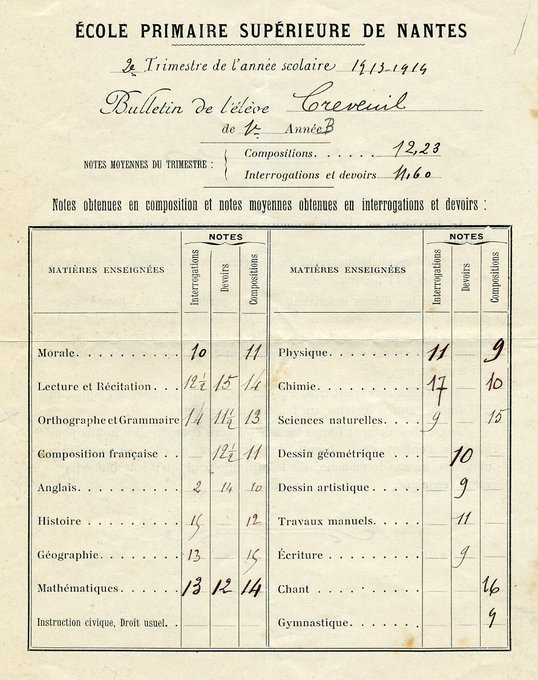 ÉCOLE PRIMAIRE SUPÉRIEURE DE NANTES
2e Trimestre de l'année scolaire 1913-1914
Bulletin de l'élève Creveuil
de 1re Année B
NOTES MOYENNES DU TRIMESTRE :
Compositions. . . . . . 12,23
Interrogations et devoirs 11,60
Notes obtenues en composition et notes moyennes obtenues en interrogations et devoirs :
MATIÈRES ENSEIGNÉES
NOTES
Interrogations Devoirs Compositions
Morale. . . . . . . . . . 10 11
Lecture et Récitation. . . 12 1/2 15 14
Orthographe et Grammaire 14 11 1/2 13
Composition française . . 12 1/2 11
Anglais. . . . . . . . . . 2 14 10
Histoire . . . . . . . . . 15 12
Géographie. . . . . . . . 13 15
Mathématiques. . . . . . 13 12 14
Instruction civique, Droit usuel. . .
MATIÈRES ENSEIGNÉES
NOTES
Interrogations Devoirs Compositions
Physique. . . . . . . . . 11 9
Chimie. . . . . . . . . . 17 10
Sciences naturelles. . . . 9 15
Dessin géométrique . . . 10
Dessin artistique . . . . 9
Travaux manuels. . . . . 11
Écriture . . . . . . . . . 9
Chant . . . . . . . . . . 16
Gymnastique . . . . . . . 9